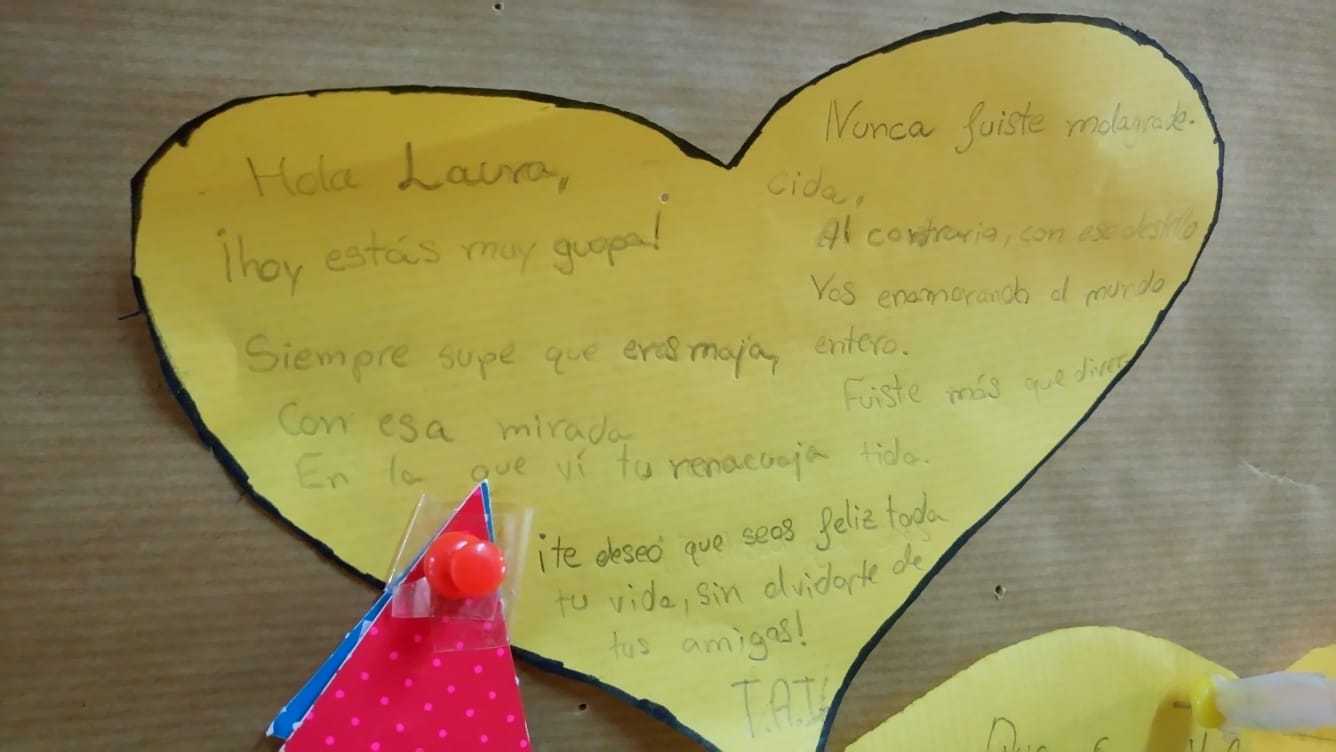 Hola Laura,
¡hoy estás muy guapa!
Siempre supe que eres maja,
Con esa mirada
En la que ví tu renacuaja
Nunca fuiste
cida,
Al contrario, con ese destello
Vas enamorando al mundo
entero.
Fuiste más que diver
tida.
¡te deseó que seas feliz toda
tu vida, sin olvidarte de
tus amigas!